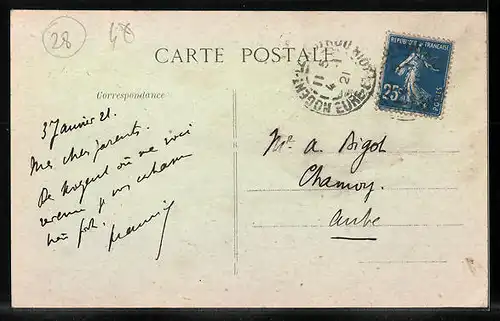 28
48
CARTE POSTALE
Correspondance
3 Janvier 21.
Mes chers parents.
De Nogent où me voici
revenu je vous
bien fort.
Mr. A. Bigot
Chamoy.
Aube
NOGENT
EURE
4 1
21
REPUBLIQUE FRANÇAISE
25c
POSTES